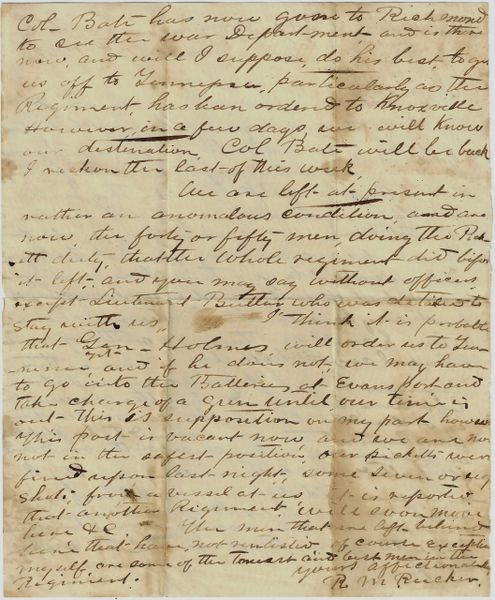 Col. Bate has now gone to Richmond
to see the war Department and is there
now, and will I suppose, do his best to get
us off to Tennessee, particularly as the
Regiment has been ordered to Knoxville
However, in a few days, we will know
our destination, Col Bate will be back
I reckon the last of this week,
We are left at present in
rather an anomalous condition, and are
now, the forty or fifty men, doing the Pick
ett duty, that the whole regiment did befor
it left, and you may say without officers
except Lieutenant Butler who was detailed to
stay with us, I think it is probable
that Gen- Holmes will order us to Ten-
nessee yet and if he does not, we may have
to go into the Batteries at Evansport and
take charge of a gun until our time is
out- This is supposition on my part however
This post is vacant now and we are now
not in the safest position, our pickets were
fired upon last night, some seven or eight
shots from a vessel at us. It is reported
that another Regiment will soon move
here &C. The men that are left behind
here that have not reenlisted of course excepting
myself are some of the truest and best men in the
Regiment. yours affectionately
R. M. Rucker.